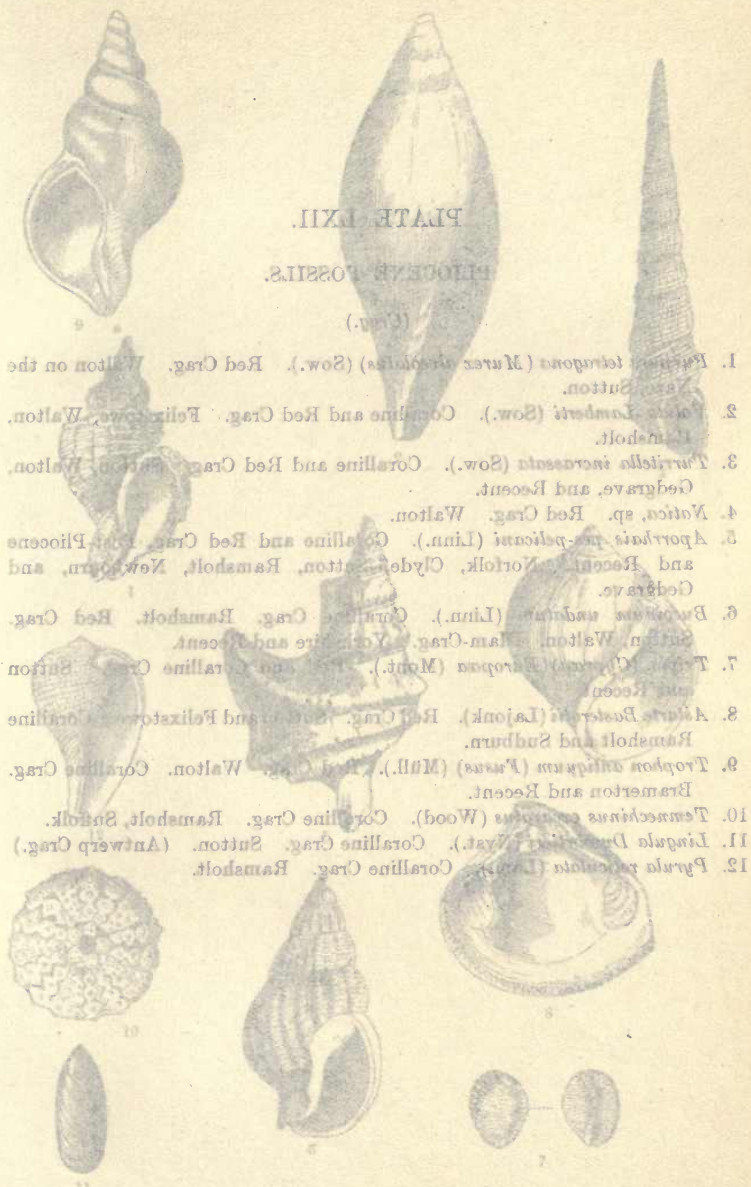 PLATE LXII.
PLIOCENE FOSSILS.
(Crag.)
1. Purpura tetragona (Murex alveolatus) (Sow.). Red Crag. Walton on the
Naze, Sutton.
2. Voluta Lamberti (Sow.). Coralline and Red Crag. Felixstowe, Walton,
Ramsholt.
3. Turritella incrassata (Sow.). Coralline and Red Crag. Sutton, Walton,
Gedgrave, and Recent.
4. Natica, sp. Red Crag. Walton.
5. Aporrhais pes-pelicani (Linn.). Coralline and Red Crag. Post-Pliocene
and Recent. Norfolk, Clyde, Sutton, Ramsholt, and
Gedgrave.
6. Buccinum undatum (Linn.). Coralline Crag. Ramsholt. Red Crag.
Sutton, Walton. Mam-Crag. Yorkshire and Recent.
7. Trivia Europæa (Mont.). Red and Coralline Crag. Sutton
and Recent.
8. Astarte Basteroti (Lajonk). Red Crag. Sutton and Felixstowe. Coralline
Ramsholt and Sudburn.
9. Trophon antiquum (Fusus) (Müll.). Red Crag. Walton. Coralline Crag.
Bramerton and Recent.
10. Temnechinus excavatus (Wood). Coralline Crag. Ramsholt, Suffolk.
11. Lingula Dumortieri (Nyst.). Coralline Crag. Sutton. (Antwerp Crag.)
12. Pyrula reticulata (Lam.). Coralline Crag. Ramsholt.
9
1
8
10
6
7
11